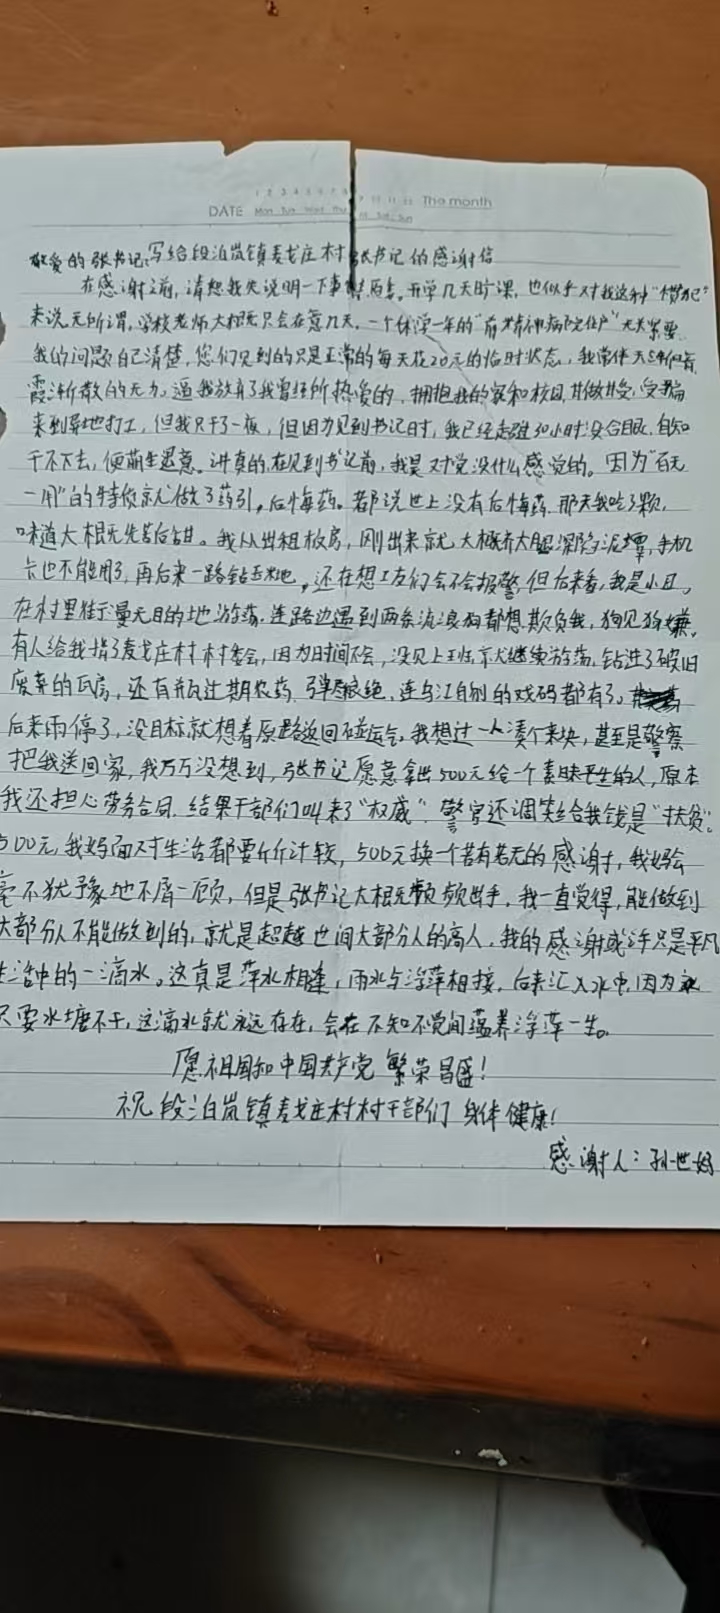 1 2 3 4 5 6 7 8 9 10 11 12 The month
DATE Mon Tue Wed Thu Fri Sat Sun
敬爱的张书记:写给段泊岚镇麦戈庄村张书记的感谢信
在感谢之前,请恕我先说明一下事情原委。开学几天旷课,也似乎对我这种“惯犯”
来说无所谓,学校老师大概只会在意几天,一个休学一年的“前精神病院住户”无关紧要
我的问题自己清楚,您们见到的只是正常的每天花20元的临时状态,我常伴
的无力,逼我放弃了我曾经所热爱的,拥抱我的家和校园,受骗
来到异地打工,但我只干了一夜,但因为见到书记时,我已经超过30小时没合眼,自知
干不下去,便萌生退意。讲真的,在见到书记前,我是对党没什么感觉的。因为“百无
一用”的特质就做了药引,后悔药。都说世上没有后悔药,那天我吃了颗,
味道大概先苦后甜。我从出租板房,刚出来就大概齐大腿深陷泥潭,手机
卡也不能用了,再后来一路钻玉米地,还在想工友们会不会报警,但后来看,我是小丑。
在村里街道漫无目的地游荡,连路边遇到两条流浪狗都想欺负我,狗见狗嫌。
有人给我指了麦戈庄村村委会,因为时间不合,没见上班,就继续游荡,钻进了破旧
废弃的瓦房,还有瓶过期农药,弹尽粮绝,连乌江自刎的戏码都有了。
后来雨停了,没目标就想着原路返回碰碰运气,我想过一人凑个来块,甚至是警察
把我送回家,我万万没想到,张书记愿意拿出500元给一个素昧平生的人,原本
我还担心劳务合同,结果干部们叫来了“权威”,警官还调笑给我钱是“扶贫”。
500元,我妈面对生活都要斤斤计较,500元换一个若有若无的感谢,我妈会
毫不犹豫地不屑一顾,但是张书记大概频频出手。我一直觉得,能做到
大部分人不能做到的,就是超越世间大部分人的高人。我的感谢或许只是平凡
生活中的一滴水。这真是萍水相逢,雨水与浮萍相接,后来汇入水中,因为
只要水塘不干,这滴水就永远存在,会在不知不觉间蕴养浮萍一生。
愿祖国和中国共产党繁荣昌盛!
祝段泊岚镇麦戈庄村村干部们身体健康!
感谢人:孙世